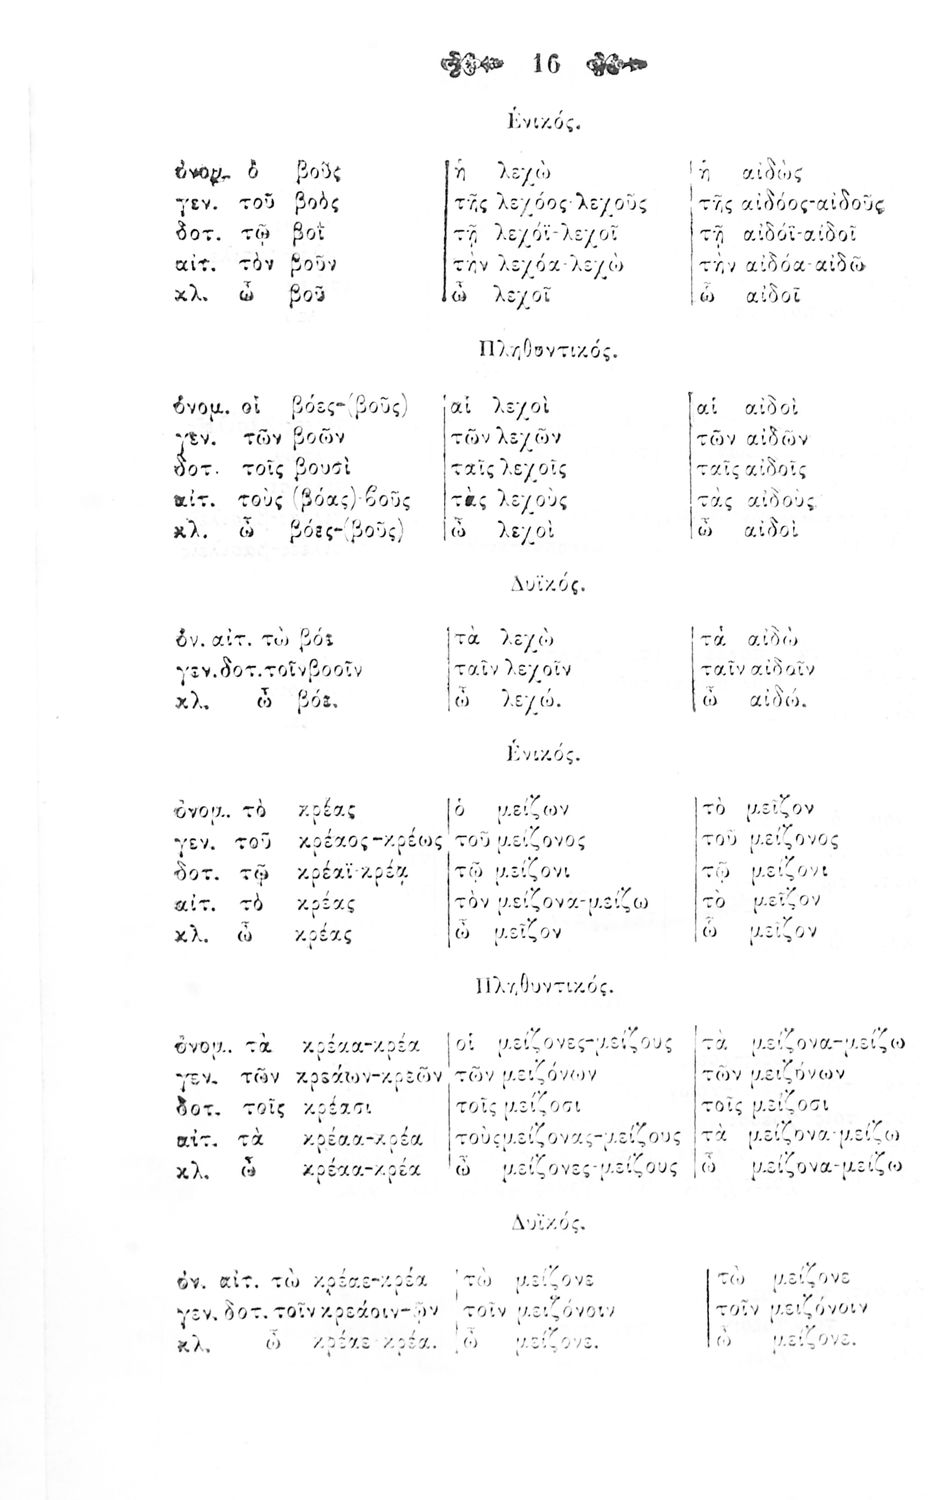 16
Ἑνικός.
ὀνομ. ὁ βοῦς | ἡ λεχὼ | ἡ αἰδὼς
γεν. τοῦ βοὸς | τῆς λεχόος-λεχοῦς | τῆς αἰδόος-αἰδοῦς
δοτ. τῷ βοῒ | τῇ λεχόϊ-λεχοῖ | τῇ αἰδόϊ-αἰδοῖ
αἰτ. τὸν βοῦν | τὴν λεχόα-λεχὼ | τὴν αἰδόα-αἰδῶ
κλ. ὦ βοῦ | ὦ λεχοῖ | ὦ αἰδοῖ
Πληθυντικός.
ὀνομ. οἱ βόες-(βοῦς) | αἱ λεχοὶ | αἱ αἰδοὶ
γεν. τῶν βοῶν | τῶν λεχῶν | τῶν αἰδῶν
δοτ. τοῖς βουσὶ | ταῖς λεχοῖς | ταῖς αἰδοῖς
αἰτ. τοὺς (βόας)-βοῦς | τὰς λεχοὺς | τὰς αἰδοὺς
κλ. ὦ βόες-(βοῦς) | ὦ λεχοὶ | ὦ αἰδοὶ
Δυϊκός.
ὀν. αἰτ. τὼ βόε | τὰ λεχὼ | τὰ αἰδὼ
γεν. δοτ. τοῖν βοοῖν | ταῖν λεχοῖν | ταῖν αἰδοῖν
κλ. ὦ βόε. | ὦ λεχώ. | ὦ αἰδώ.
Ἑνικός.
ὀνομ. τὸ κρέας | ὁ μείζων | τὸ μεῖζον
γεν. τοῦ κρέαος-κρέως | τοῦ μείζονος | τοῦ μείζονος
δοτ. τῷ κρέαϊ-κρέᾳ | τῷ μείζονι | τῷ μείζονι
αἰτ. τὸ κρέας | τὸν μείζονα-μείζω | τὸ μεῖζον
κλ. ὦ κρέας | ὦ μεῖζον | ὦ μεῖζον
Πληθυντικός.
ὀνομ. τὰ κρέαα-κρέα | οἱ μείζονες-μείζους | τὰ μείζονα-μείζω
γεν. τῶν κρεάων-κρεῶν | τῶν μειζόνων | τῶν μειζόνων
δοτ. τοῖς κρέασι | τοῖς μείζοσι | τοῖς μείζοσι
αἰτ. τὰ κρέαα-κρέα | τοὺς μείζονας-μείζους | τὰ μείζονα-μείζω
κλ. ὦ κρέαα-κρέα | ὦ μείζονες-μείζους | ὦ μείζονα-μείζω
Δυϊκός.
ὀν. αἰτ. τὼ κρέαε-κρέα | τὼ μείζονε | τὼ μείζονε
γεν. δοτ. τοῖν κρεάοιν-ῷν | τοῖν μειζόνοιν | τοῖν μειζόνοιν
κλ. ὦ κρέαε-κρέα. | ὦ μείζονε. | ὦ μείζονε.